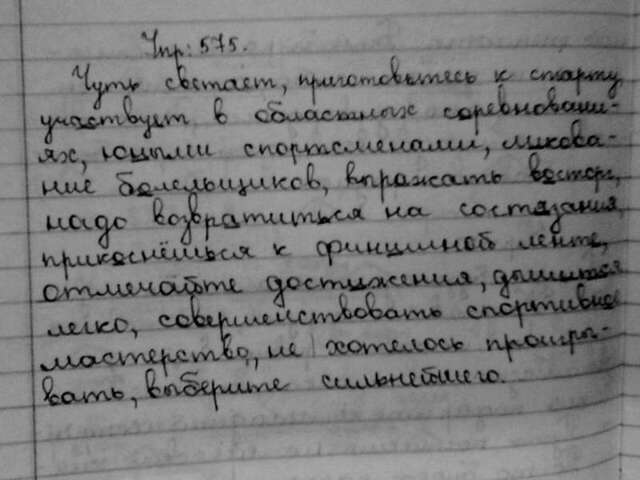 Упр: 575.
Чуть светает, приготовьтесь к старту
участвует в областных соревновани-
ях, юными спортсменами, ликова-
ние болельщиков, выражать восторг,
надо возвратиться на состязания,
прикоснёшься к финишной ленте,
отмечайте достижения, дышится
легко, совершенствовать спортивное
мастерство, не хотелось проигры-
вать, выберите сильнейшего.